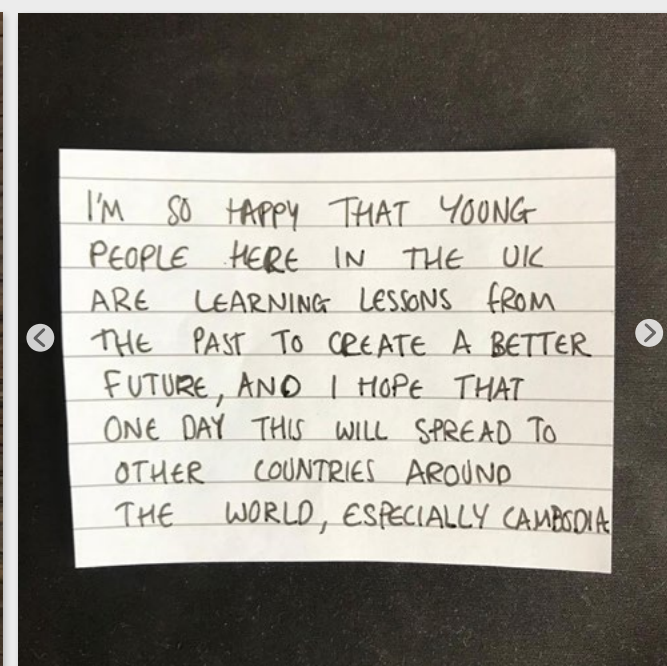 I'M SO HAPPY THAT YOUNG
PEOPLE HERE IN THE UK
ARE LEARNING LESSONS FROM
THE PAST TO CREATE A BETTER
FUTURE, AND I HOPE THAT
ONE DAY THIS WILL SPREAD TO
OTHER COUNTRIES AROUND
THE WORLD, ESPECIALLY CAMBODIA